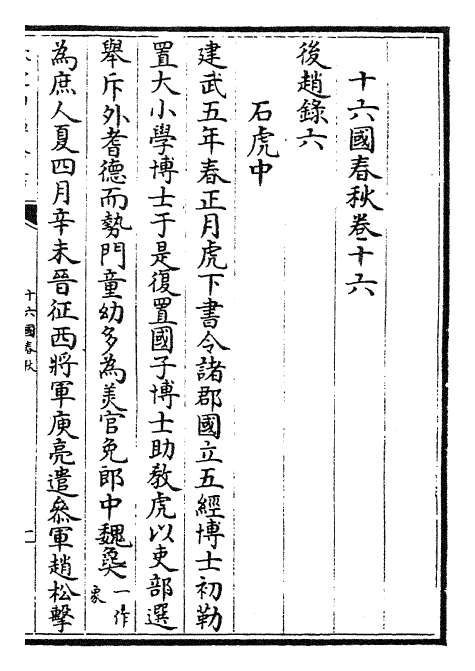 十六國春秋卷十六
後趙錄六
石虎中
建武五年春正月虎下書令諸郡國立五經博士初勒
置大小學博士于是復置國子博士助教虎以吏部選
舉斥外耆德而勢門童幼多為美官免郎中魏㚟一作
象
為庶人夏四月辛未晉征西將軍庾亮遣叅軍趙松擊
十六國春秋
一